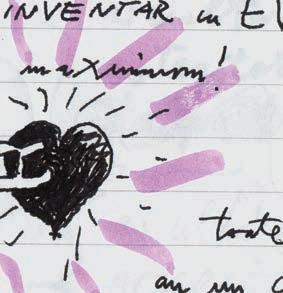 INVENTAR en EV
maximum!
toute
au un